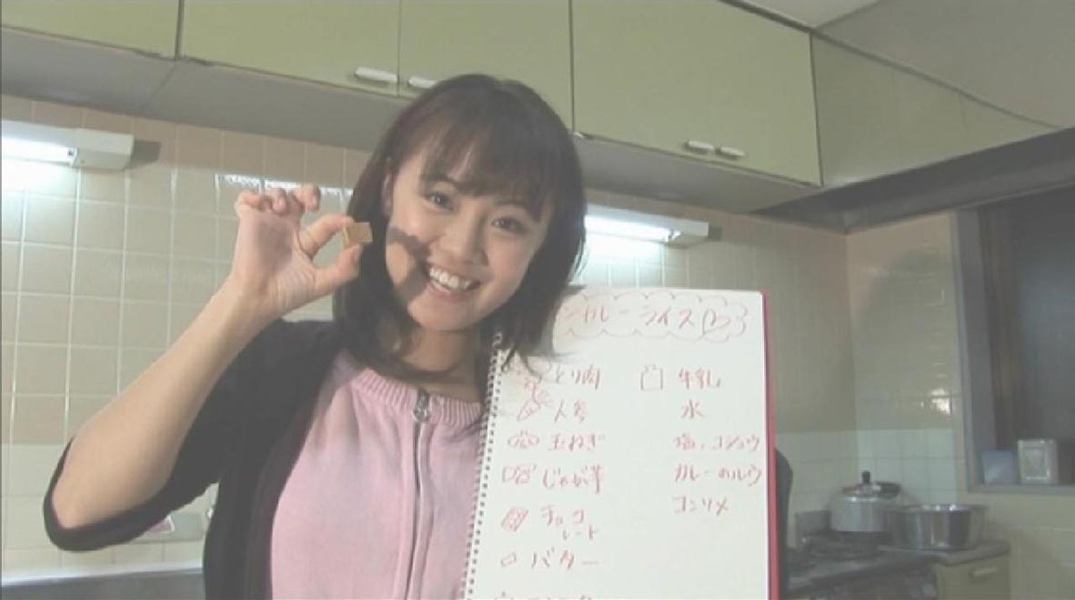 カレーライス
とり肉
人参
玉ねぎ
じゃが芋
チョコ
レート
バター
牛乳
水
塩、コショウ
カレーのルウ
コンソメ